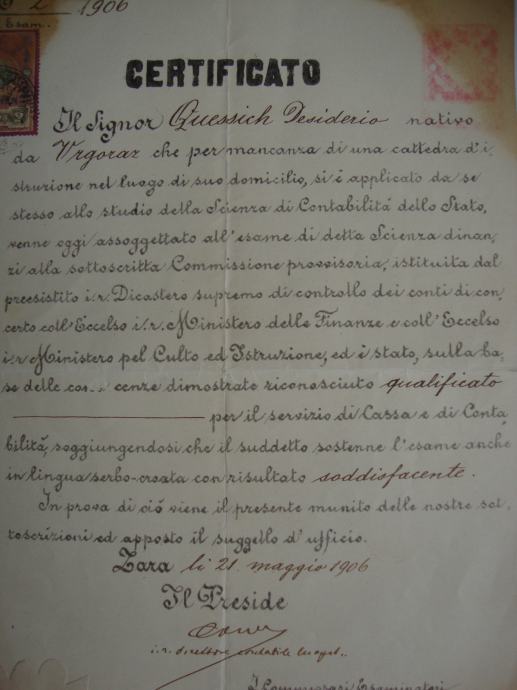 1906
Esam.
CERTIFICATO
Il Signor Quessich Desiderio nativo
da Vrgoraz che per mancanza di una cattedra d'i-
struzione nel luogo di suo domicilio, si é applicato da se
stesso allo studio della Scienza di Contabilitá dello Stato,
venne oggi assoggettato all'esame di detta Scienza dinan-
zi alla sottoscritta Commissione provvisoria, istituita dal
preesistito i.r. Dicastero supremo di controllo dei conti di con-
certo coll'Eccelso i.r. Ministero delle Finanze e coll'Eccelso
i.r. Ministero pel Culto ed Istruzione, ed é stato, sulla ba-
se delle cenze dimostrate riconosciuto qualificato
per il servizio di Cassa e di Conta-
bilitá, soggiungendosi che il suddetto sostenne l'esame anche
in lingua serbo-croata con risultato soddisfacente.
In prova di ció viene il presente munito delle nostre sot-
toscrizioni ed apposto il suggello d'ufficio.
Zara li 21. maggio 1906
Il Preside
i.r. direttore
I Commissari Esaminatori